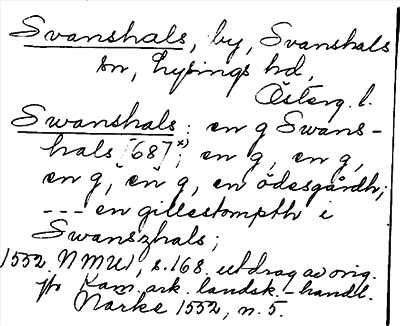 Svanshals, by, Svanshals
sn, Lysings hd,
Österg. l.
Swanshals : en g Swans-
hals [687 x)]; en g, en g,
en g, en g, en ödesgårdh;
--- en gillestompth i
Swanszhals;
1552 NMU1, s. 168. utdrag av orig.
Kam. ark. landsk.-handl.
Närke 1552, n. 5.